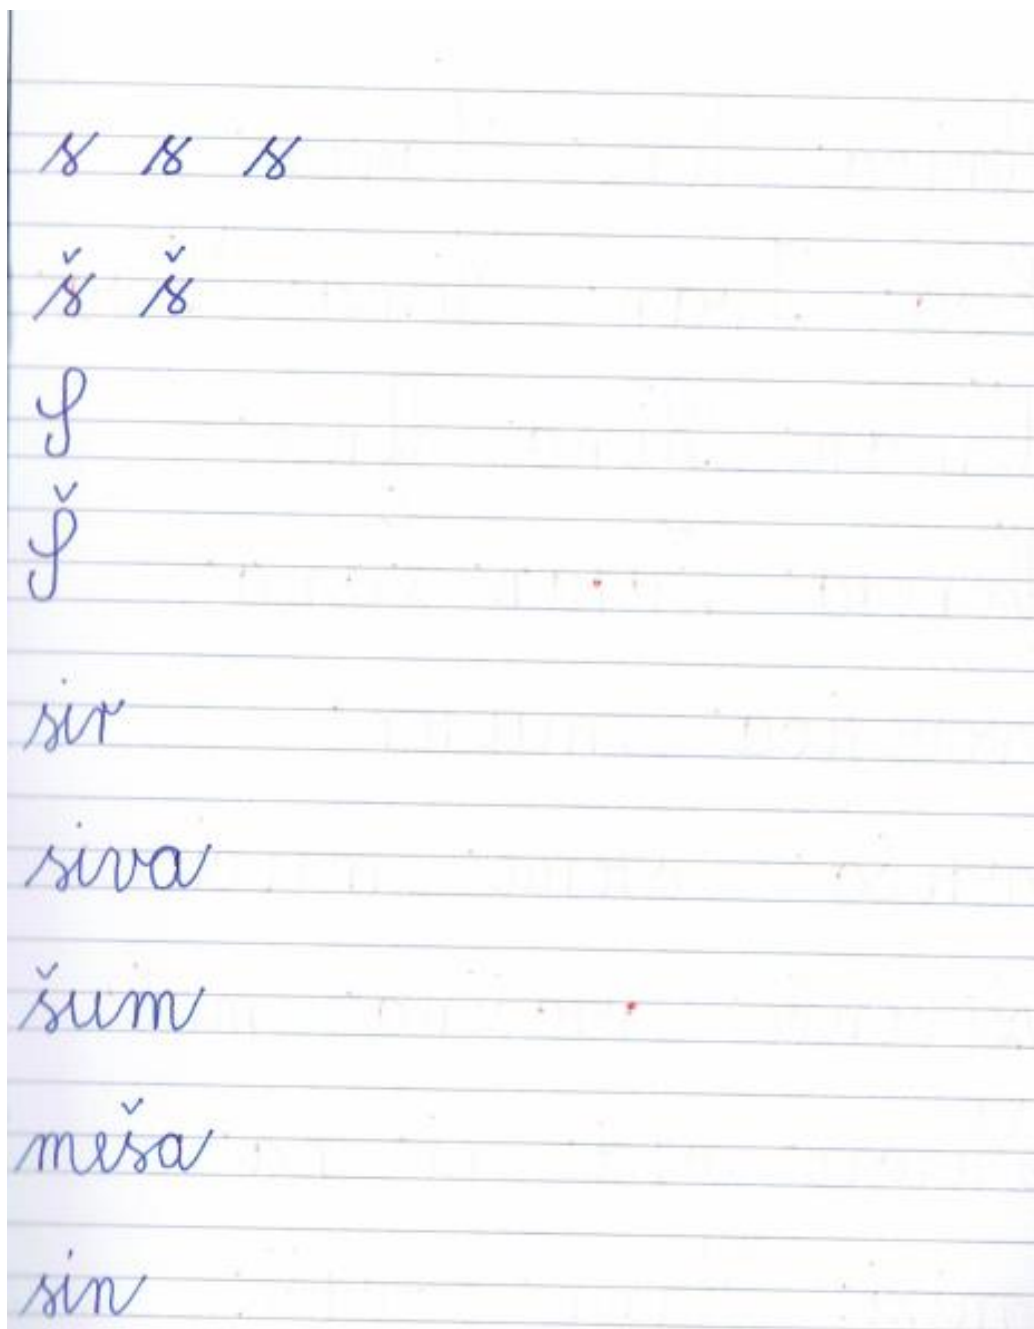 s s s
š š
S
Š
sir
siva
šum
meša
sin